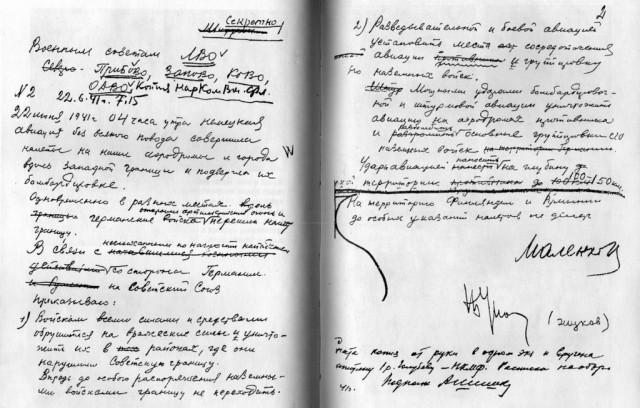 Секретно
Военным советам ЛВО
ПрибОво, Запово, КОВО,
ОдВО Копия Нар Ком Вм. Фл.
№2 22.6. 7.15
22 июня 1941 г. 04 часа утра немецкая
авиация без всякого повода совершила
налеты на наши аэродромы и города
вдоль западной границы и подвергла их
бомбардировке.
Одновременно в разных местах
германские войска открыли артиллерийский огонь и
перешли нашу
границу.
В связи с неслыханным по наглости нападением
со стороны Германии
на Советский Союз
Приказываю:
1) Войскам всеми силами и средствами
обрушиться на вражеские силы и уничто-
жить их в районах, где они
нарушили Советскую границу.
Впредь до особого распоряжения наземны-
ми войсками границу не переходить.
2
2) Разведывательной и боевой авиацией
установить места сосредоточения
авиации и группировку
наземных войск.
Мощными ударами бомбардировоч-
ной и штурмовой авиации уничтожить
авиацию на аэродромах противника
и основные группировки его
наземных войск
Удары авиацией наносить на глубину
территории до 150 км.
На территорию Финляндии и Румынии
до особых указаний налетов не делать
Маленков
(Жуков)